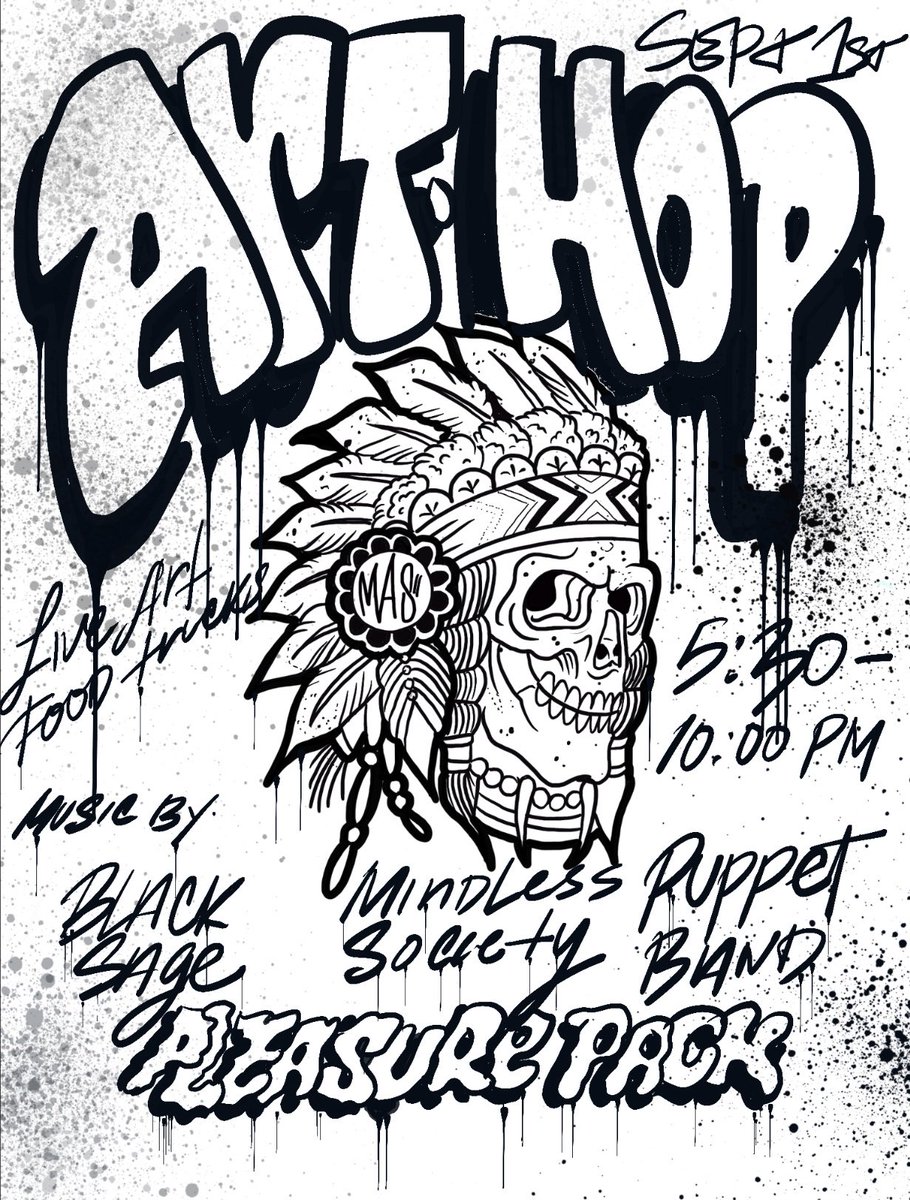 SEPt 1st
ArT-HOP
Live Art
FOOD trucks
5:30 -
10:00 PM
MAS"
Music By.
BLACK
SAge
MindLess
Society
Puppet
BAND
PLEASUre PACK